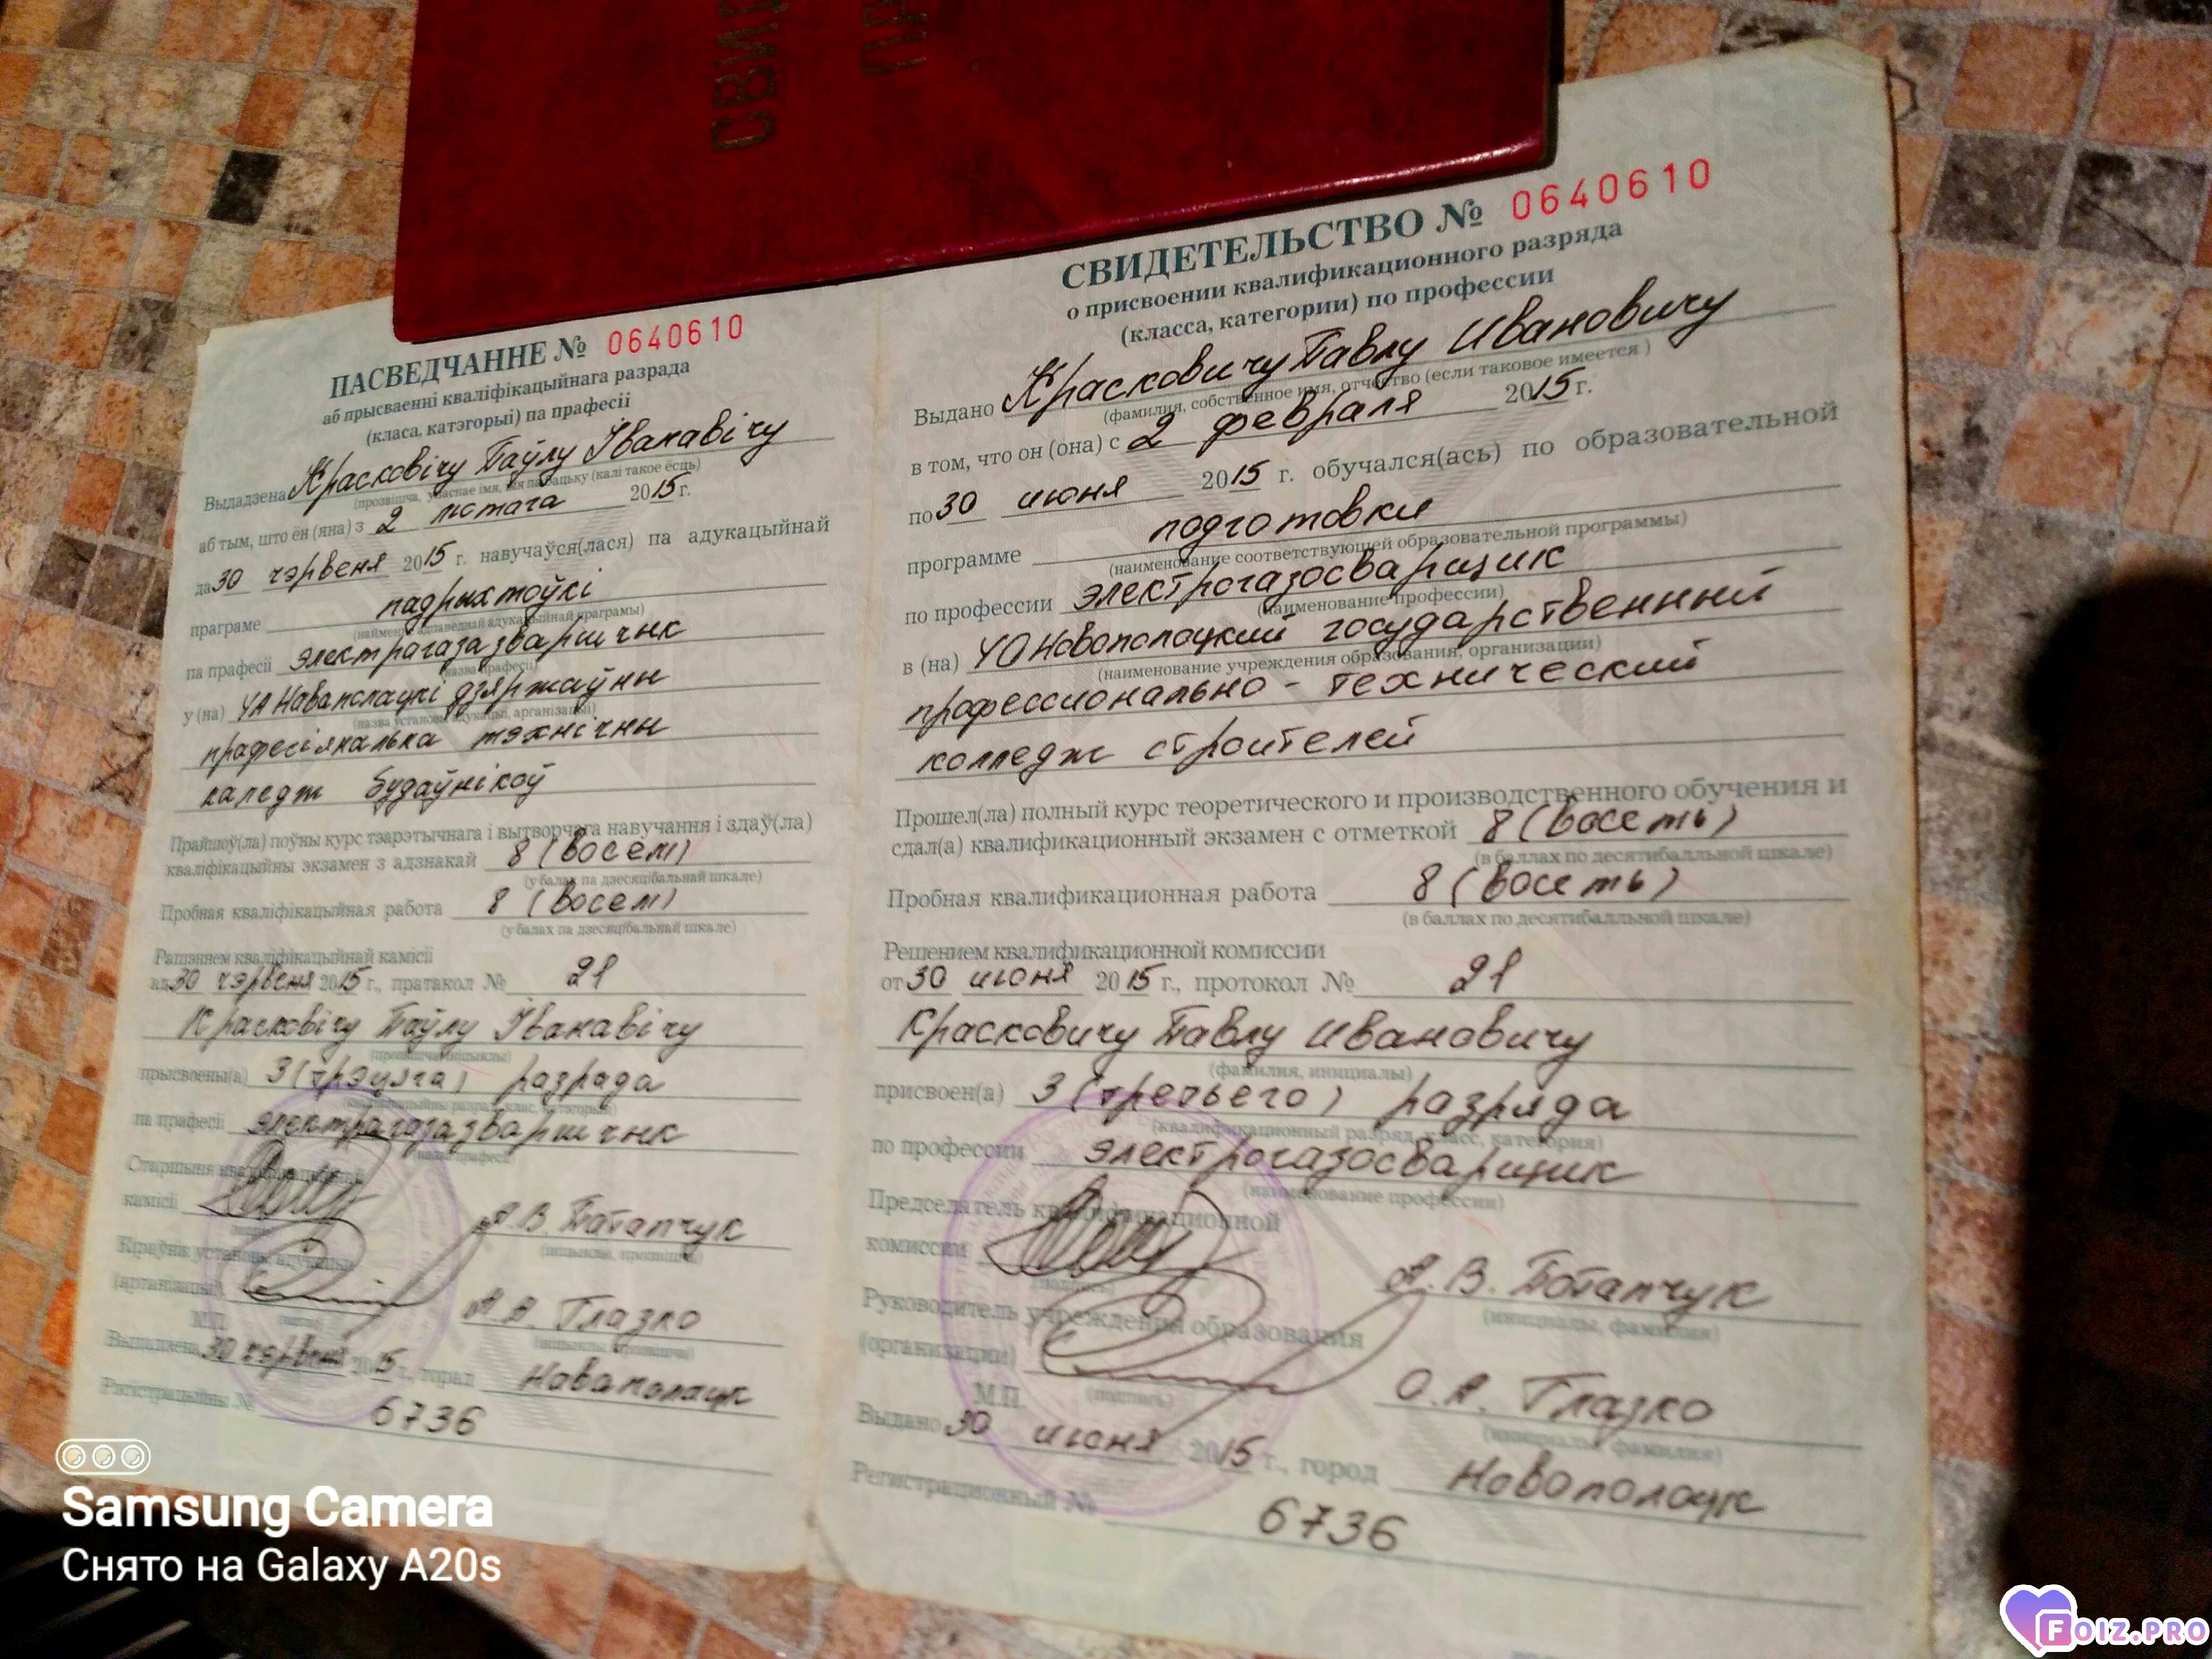 СВИД
ПР
ПАСВЕДЧАННЕ № 0640610
аб прысваенні кваліфікацыйнага разрада
(класа, катэгорыі) па прафесіі
Выдадзена Красковічу Паўлу Іванавічу
(прозвішча, уласнае імя, імя па бацьку (калі такое ёсць)
аб тым, што ён (яна) з 2 лютага 2015 г.
да 30 чэрвеня 2015 г. навучаўся(лася) па адукацыйнай
праграме падрыхтоўкі
па прафесіі электрагазазваршчык
(назва прафесіі)
у (на) УА Наваполацкі дзяржаўны
(назва установы адукацыі, арганізацыі)
прафесіянальна тэхнічны
каледж будаўнікоў
Прайшоў(ла) поўны курс тэарэтычнага і вытворчага навучання і здаў(ла)
кваліфікацыйны экзамен з адзнакай 8 (восем)
(у балах па дзесяцібальнай шкале)
Пробная кваліфікацыйная работа 8 (восем)
(у балах па дзесяцібальнай шкале)
Рашэннем кваліфікацыйнай камісіі
ад 30 чэрвеня 2015 г., пратакол № 21
Красковічу Паўлу Іванавічу
(прозвішча, ініцыялы)
прысвоены(а) 3 (трэцяга) разрада
па прафесіі электрагазазваршчык
(назва прафесіі)
Старшыня кваліфікацыйнай
камісіі А.В. Потапчук
(ініцыялы, прозвішча)
Кіраўнік установы адукацыі
(арганізацыі) А.А. Глазко
(ініцыялы, прозвішча)
М.П.
Выдадзена 30 чэрвеня 2015 г., горад Наваполацк
Рэгістрацыйны № 6736
СВИДЕТЕЛЬСТВО № 0640610
о присвоении квалификационного разряда
(класса, категории) по профессии
Выдано Красковичу Павлу Ивановичу
(фамилия, собственное имя, отчество (если таковое имеется)
в том, что он (она) с 2 февраля 2015 г.
по 30 июня 2015 г. обучался(ась) по образовательной
программе подготовки
(наименование соответствующей образовательной программы)
по профессии электрогазосварщик
(наименование профессии)
в (на) УО Новополоцкий государственный
(наименование учреждения образования, организации)
профессионально-технический
колледж строителей
Прошел(ла) полный курс теоретического и производственного обучения и
сдал(а) квалификационный экзамен с отметкой 8 (восемь)
(в баллах по десятибалльной шкале)
Пробная квалификационная работа 8 (восемь)
(в баллах по десятибалльной шкале)
Решением квалификационной комиссии
от 30 июня 2015 г., протокол № 21
Красковичу Павлу Ивановичу
(фамилия, инициалы)
присвоен(а) 3 (третьего) разряда
(квалификационный разряд, класс, категория)
по профессии электрогазосварщик
(наименование профессии)
Председатель квалификационной
комиссии А.В. Потапчук
(подпись) (инициалы, фамилия)
Руководитель учреждения образования
(организации) О.А. Глазко
(подпись) (инициалы, фамилия)
М.П.
Выдано 30 июня 2015 г., город Новополоцк
Регистрационный № 6736
Samsung Camera
Снято на Galaxy A20s
FOIZ.PRO